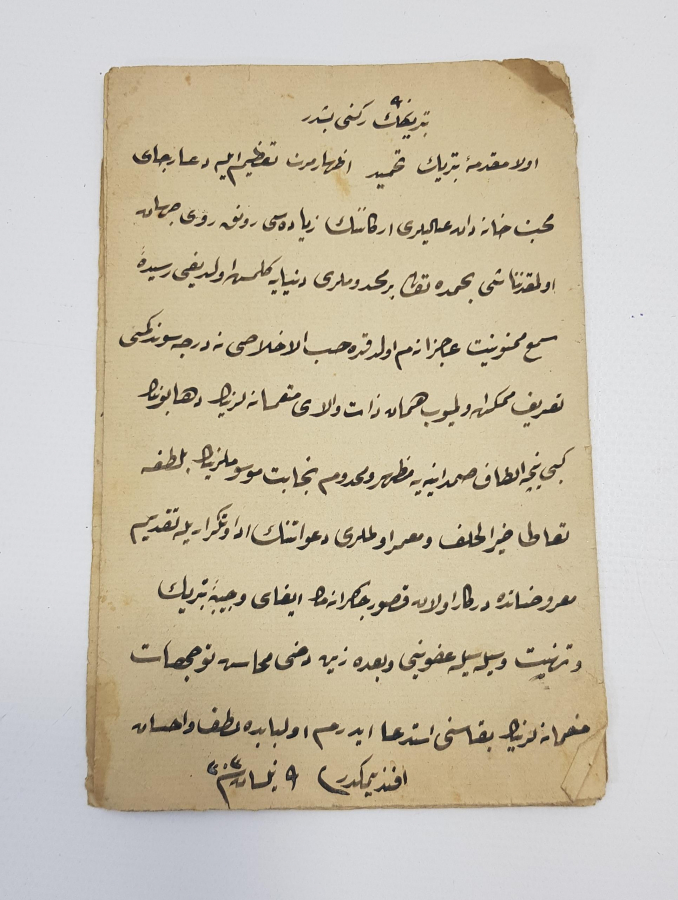 تبریکك رکنی بشدر
اولا مقدمهٔ تبریك تحمید اظهار مرت تعظیم ایله دعا رجای
محبت خاندان عالیلری ارکاننك زیاده‌سی رونق روی جهان
اولمقدن ناشی بحمده تعالی بر مخدوملری دنیایه کلمش اولدیغی رسیدهٔ
سمع ممنونیت عاجزانه‌م اولدقده حسب الاخلاص نه درجه سوندیکمی
تعریف ممکن اولمیوب همان ذات والای منعمانه‌لرینك دها بونك
کبی نیچه الطاف صمدانیه‌یه مظهر و مخدوم نجابت موسوملرینك بلطفه
تعالی خیر الخلف و معمر اولملری دعواتنك ادا و تکراریله تقدیم
معروضاتده درکار اولان قصور چاکرانه‌مك ایفای وجیبهٔ تبریك
و تهنیت وسیله‌سیله عفوینی و بعده زین دخی محاسن توجهات
منعمانه‌لرینك بقاسنی استدعا ایدرم اولبابده لطف و احسان
افندیمکدر ٩ نیسان سنه ٣٠٣